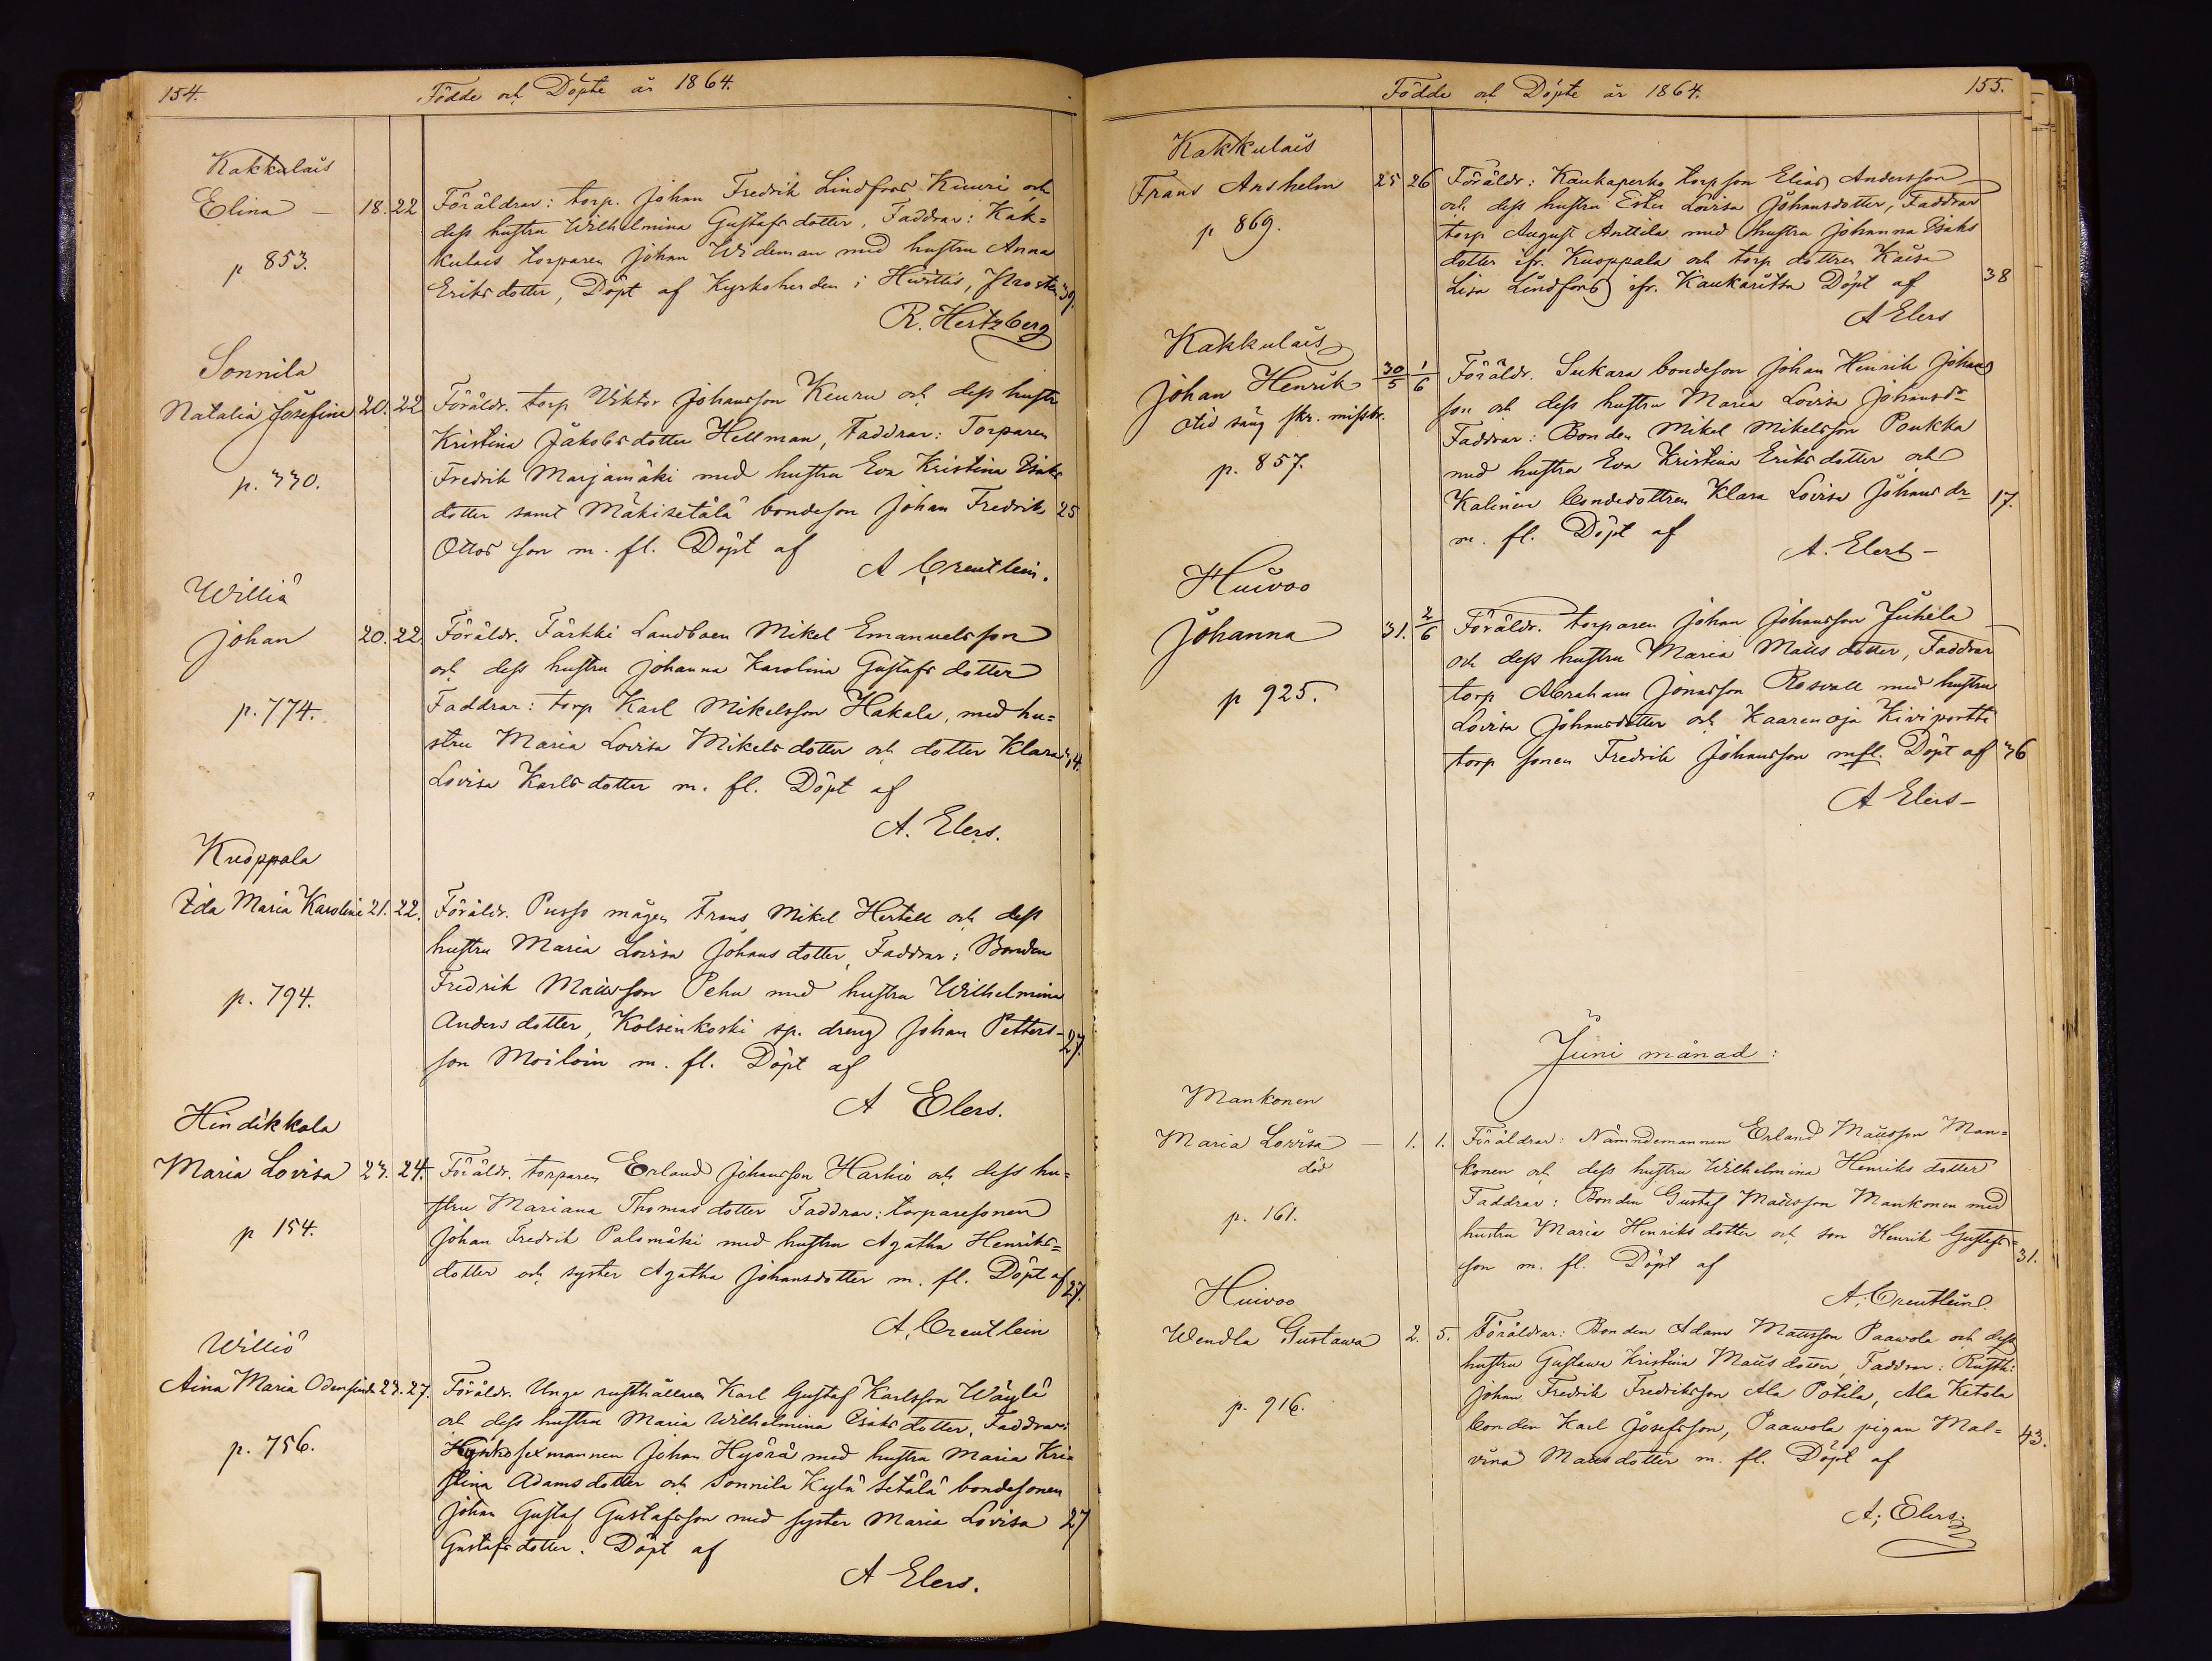 154.
Födde och Döpte år 1864.
Kakkulais
Elina — 18. 22
p 853.
Föräldrar: torp. Johan Fredrik Lindfors Kuuri och
dess hustru Wilhelmina Gustafsdotter, Faddrar: Kak=
kulais torparen Johan Wideman med hustru Anna
Eriksdotter, Döpt af Kyrkoherden i Huittis, Prosten 39.
R. Hertzberg
Sonnila
Natalia Josefina 20. 22
p. 330.
Föräldr. torp Viktor Johansson Keuru och dess hustru
Kristina Jakobsdotter Hellman, Faddrar: Torparen
Fredrik Marjamäki med hustru Eva Kristina Isaks
dotter samt Mäkisetälä bondeson Johan Fredrik 25
Ottosson m. fl. Döpt af
A Creutlein.
Williö
Johan 20. 22.
p. 774.
Föräldr. Färkki Landboen Mikel Emanuelsson
och dess hustru Johanna Karolina Gustafsdotter
Faddrar: torp Karl Mikelsson Hakala, med hu=
stru Maria Lovisa Mikelsdotter och dotter Klara 34.
Lovisa Karlsdotter m. fl. Döpt af
A. Elers.
Kuoppala
Ida Maria Karolina 21. 22.
p. 794.
Föräldr. Pusso mågen Frans Mikel Hertell och dess
hustru Maria Lovisa Johansdotter, Faddrar: Bonden
Fredrik Matsson Pehu med hustru Wilhelmina
Andersdotter, Kolsinkoski sp. dreng Johan Petters- 27.
son Moiloin m. fl. Döpt af
A Elers.
Hindikkala
Maria Lovisa 23. 24.
p 154.
Föräldr. torparen Erland Johansson Harhio och dess hu=
stru Mariana Thomasdotter Faddrar: torparesonen
Johan Fredrik Palomäki med hustru Agatha Henriks=
dotter och syster Agatha Johansdotter m. fl. Döpt af 27.
A, Creutlein
Williö
Aina Maria 23. 27.
p. 756.
Föräldr. Unge rusthållaren Karl Gustaf Karlsson Wäylä
och dess hustru Maria Wilhelmina Isaksdotter, Faddrar:
Kyrkosexmannen Johan Hyörä med hustru Maria Kri=
stina Adamsdotter och Sonnila Kylä Setälä bondesonen
Johan Gustaf Gustafsson med syster Maria Lovisa 27
Gustafsdotter. Döpt af
A Elers.
Födde och Döpte år 1864.
155.
Kakkulais
Frans Anshelm 25 26
p 869.
Föräldr: Kaukaperko torpson Elias Andersson
och dess hustru Ester Lovisa Johansdotter, Faddrar
torp August Anttila med hustru Johanna Isaks
dotter ifr. Kuoppala och torp dottren Kaisa
Lisa Lindfors ifr. Kaukaritsa Döpt af 38
A Elers
Kakkulais
Johan Henrik 30/5 1/6
p. 857.
Föräldr. Sukara bondeson Johan Henrik Johans
son och dess hustru Maria Lovisa Johansdr
Faddrar: Bonden Mikel Mikelsson Poukka
med hustru Eva Kristina Eriksdotter och
Kalinen bondedottren Klara Lovisa Johansdr 17.
m. fl. Döpt af
A. Elers -
Huivoo
Johanna 31. 2/6
p 925.
Föräldr. torparen Johan Johansson Juhela
och dess hustru Maria Matsdotter, Faddrar
torp Abraham Jonasson Rosvall med hustru
Lovisa Johansdotter och Kaarenoja Kiviportti
torp sonen Fredrik Johansson mfl. Döpt af 36
A Elers -
Juni månad:
Mankonen
Maria Lovisa — 1. 1.
död
p. 161.
Föräldrar: Nämndemannen Erland Matsson Man=
konen och dess hustru Wilhelmina Henriksdotter
Faddrar: Bonden Gustaf Matsson Mankonen med
hustru Maria Henriksdotter och son Henrik Gustafs= 31.
son m. fl. Döpt af
A, Creutlein.
Huivoo
Wendla Gustawa 2. 5.
p. 916.
Föräldrar: Bonden Adam Matsson Paawola och dess
hustru Gustawa Kristina Matsdotter, Faddrar: Rusth:
Johan Fredrik Fredriksson Ala Potila, Ala Ketola
bonden Karl Josefsson, Paawola pigan Mal= 43.
vina Matsdotter m. fl. Döpt af
A; Elers.